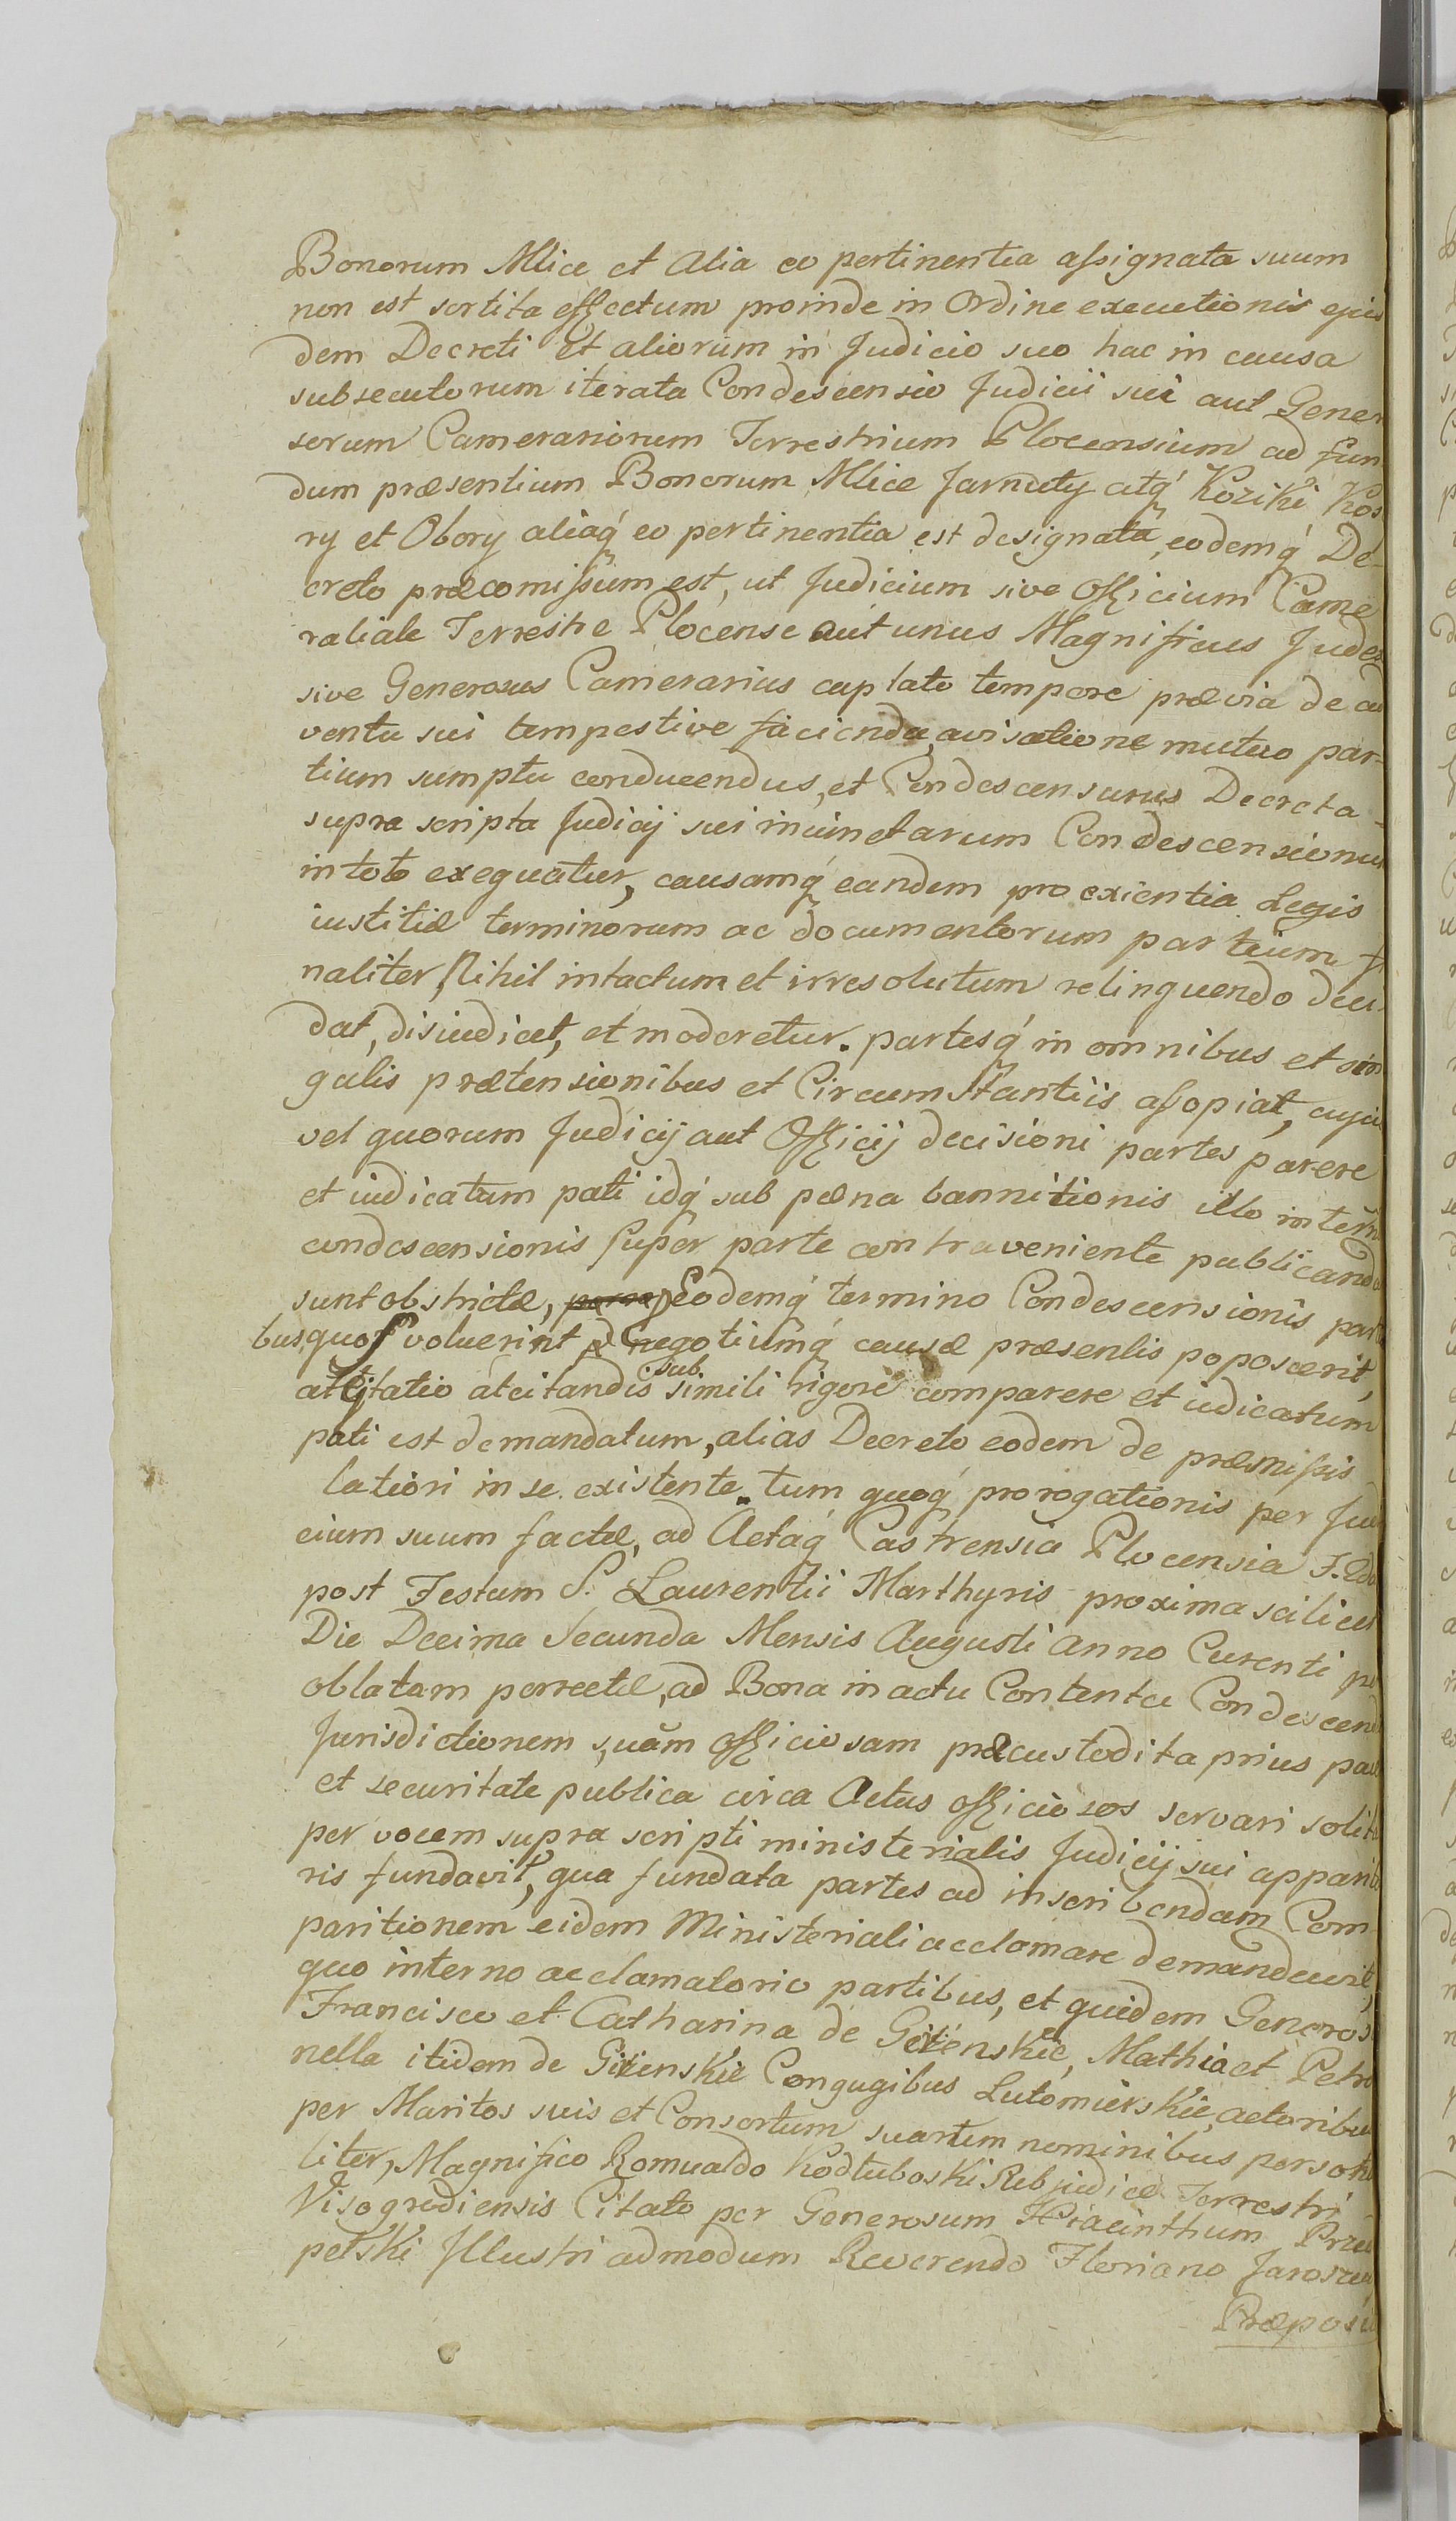 Bonorum Mlice et Alia eo pertinentia assignata suum
non est sortita effectum proinde in Ordine executionis ejus
dem Decreti et aliorum in Judicio suo hac in causa
subsecutorum iterata Condescensio Judicii sui aut Gener
sorum Camerariorum Terrestrium Plocensium ad fun
dum præsentium Bonorum Mlice Jarnuty atq́ Koziki Kos
ry et Obory aliaq́ eo pertinentia est designata, eodemq́ De-
creto præcomissum est, ut Judicium sive Officium Came
raliale Terrestre Plocense aut unus Magnificus Judex
sive Generosus Camerarius captato tempore prævia de ad
ventu sui tempestive facienda, avisatione mutuo par-
tium sumptu conducendus, et Condescensurus Decreta
supra scripta Judicij sui inunctarum Condescensionum
in toto exequatur, causamq́ eandem pro exientia Legis
iustitiæ terminorum ac documentorum partium fi
naliter, Nihil intactum et irresolutum relinquendo deci
dat, disiudicet, et moderetur. partesq́ in omnibus et sin
gulis prætensionibus et Circumstantiis assopiat, cuju
vel quorum Judicij aut Officij decisioni partes parere
et iudicatum pati idq́ sub pœna bannitionis illo in term
condescensionis super parte contraveniente publicanda
sunt obstrictæ, Eodemq́ termino Condescensionis parti
bus, quos voluerint negotiumq́ causæ præsentis poposcerit,
attitatio atcitandis sub simili rigore comparere et iudicatum
pati est demandatum, alias Decreto eodem de præmissis
latiori in se existente. tum quoq́ prorogationis per Judi
cium suum factæ, ad Actaq́ Castrensia Plocensia F. 2da
post Festum S. Laurentii Marthyris proxima scilicet
Die Decima Secunda Mensis Augusti Anno Curenti pe
oblatam porrectæ, ad Bona in actu Contenta Condescend
Jurisdictionem suam officiosam præcustodita prius pace
et securitate publica circa Actus officiosos servari solit
per vocem supra scripti ministerialis Judicij sui apparito
ris fundavit, qua fundata partes ad inscribendam Com
paritionem eidem Ministeriali acclamare demandavit,
quo interno acclamatorio partibus, et quidem Generos
Francisco et Catharina de Giżenskie, Mathia et Petro
nella itidem de Giżenskie Congugibus Lutomierskie, actoribus
per Maritos suis et Consortum suartum nominibus persona
liter, Magnifico Romualdo Kodłuboski Subjudice Terrestri
Visogrodiensis Citato per Generosum Hiacinthum Prze
petski Jllustri admodum Reverendo Floriano Jaroszew
Præposit